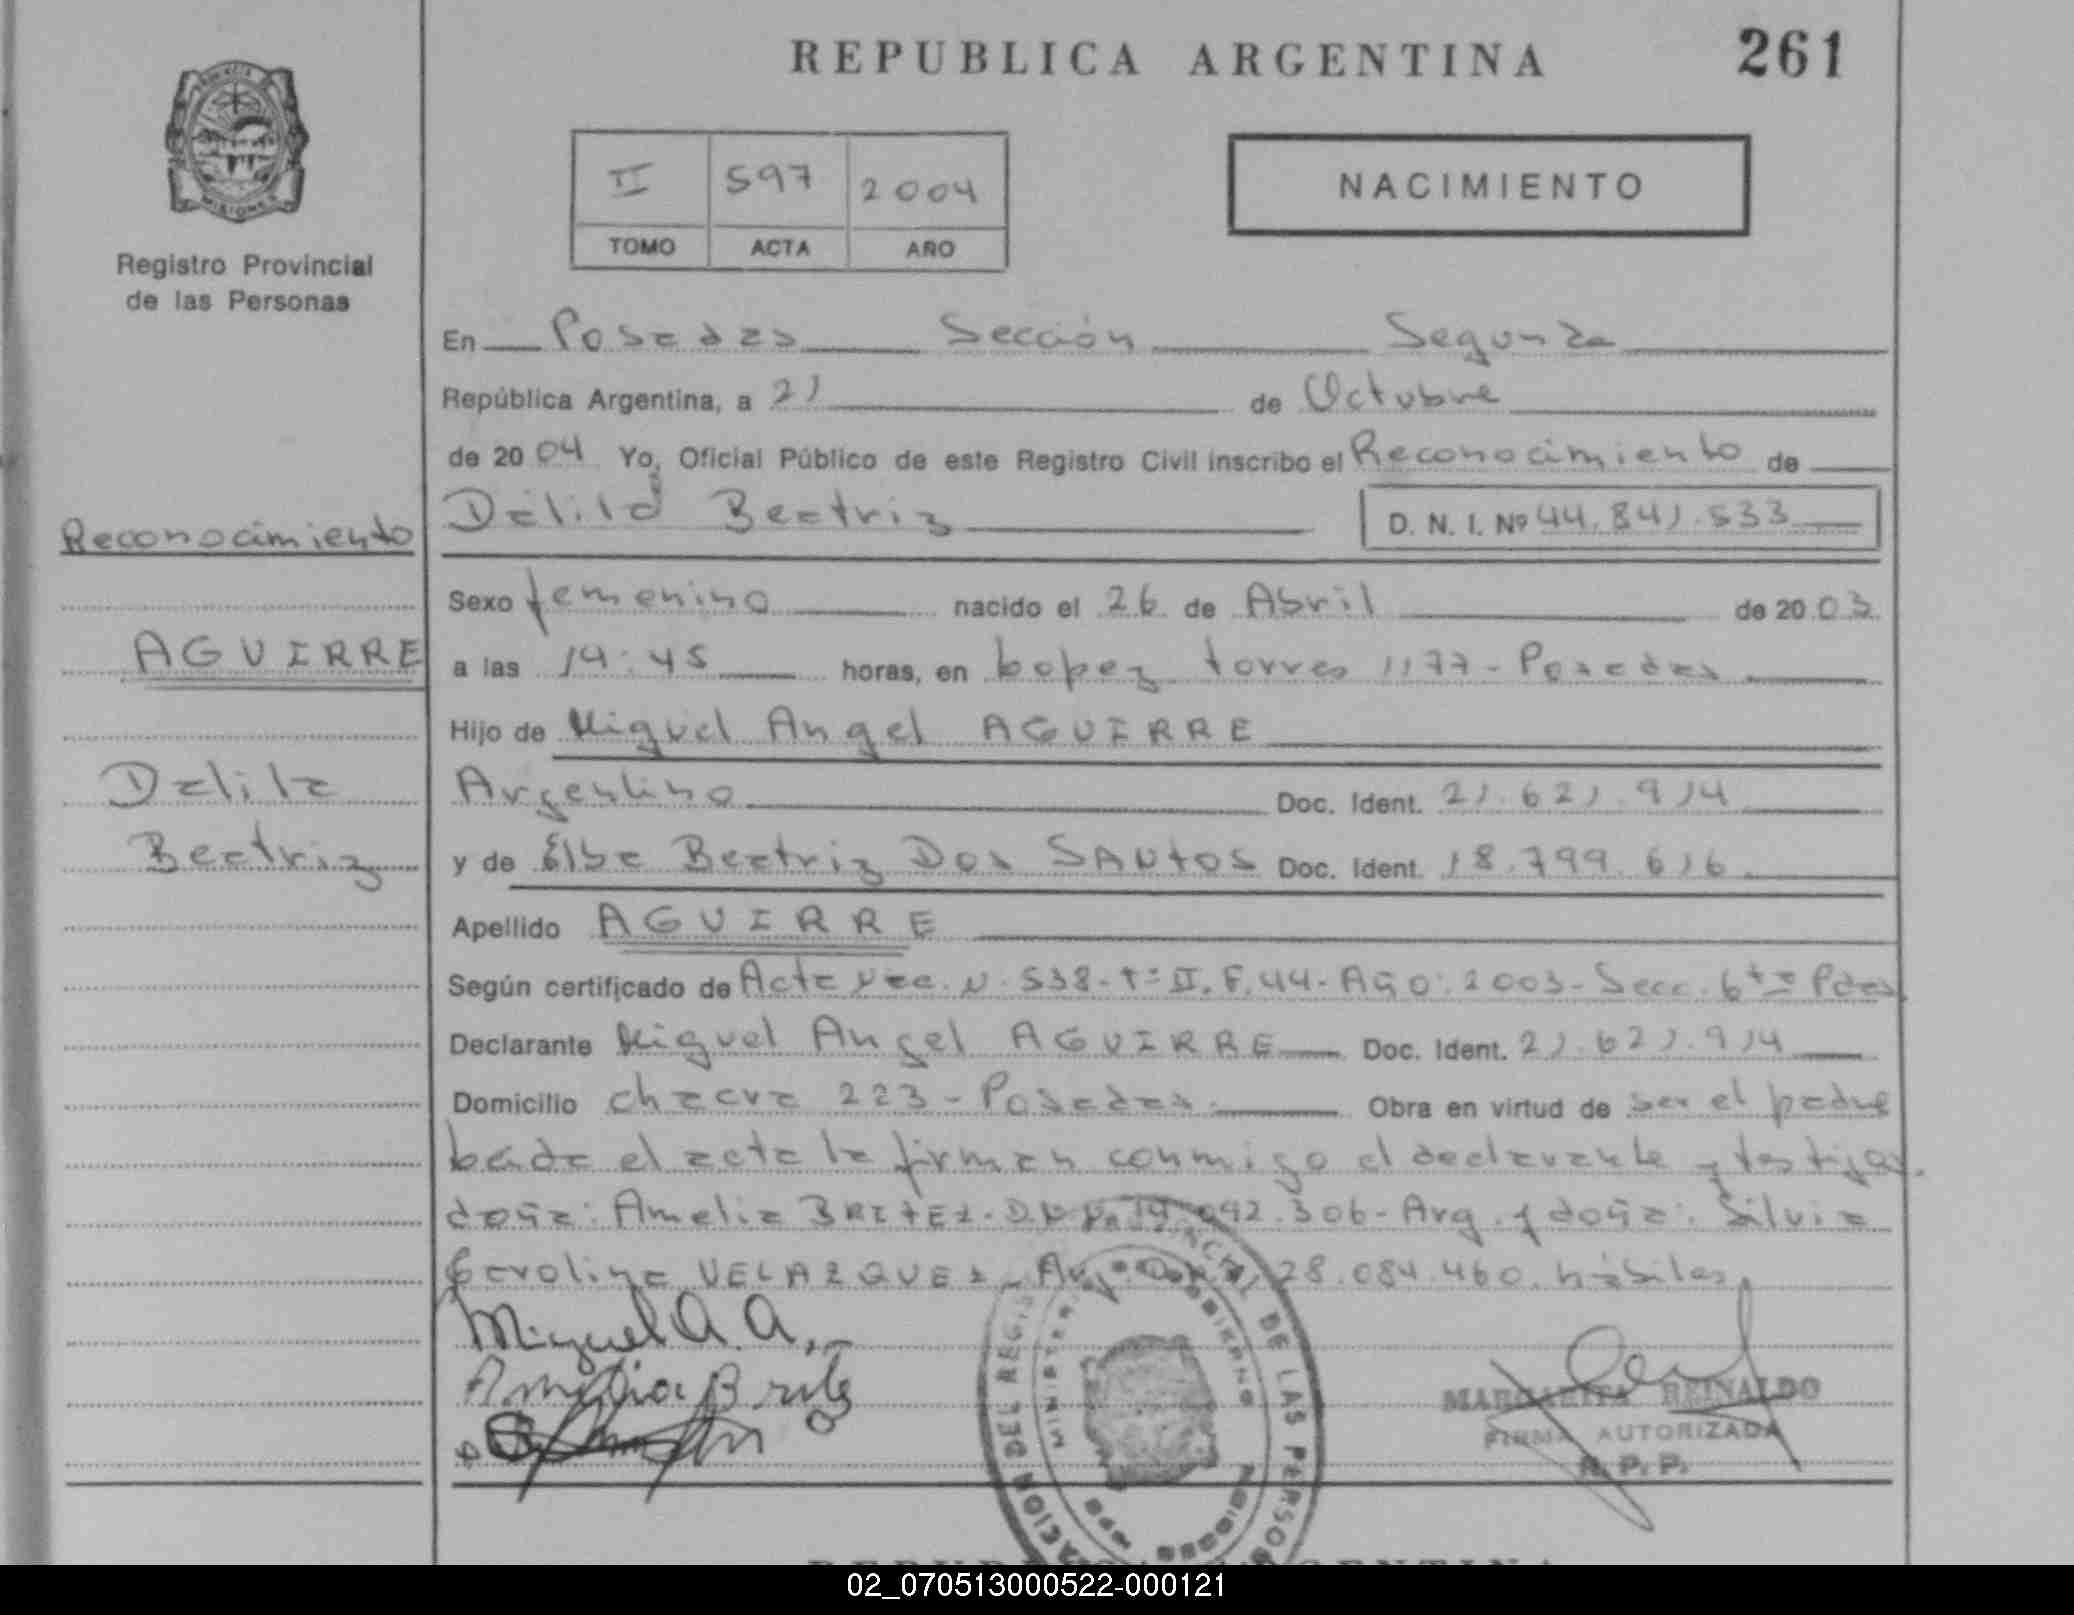 REPUBLICA ARGENTINA
261
MISIONES
Registro Provincial
de las Personas
II 597 2004
TOMO ACTA AÑO
NACIMIENTO
En Posadas Sección Segunda
República Argentina, a 21 de Octubre
de 2004 Yo, Oficial Público de este Registro Civil inscribo el Reconocimiento de
Dalila Beatriz D. N. I. Nº 44.841.533
Reconocimiento
Sexo femenino nacido el 26 de Abril de 2003
AGUIRRE
a las 14:45 horas, en Lopez torres 1177 - Posadas
Hijo de Miguel Angel AGUIRRE
Dalila
Argentino Doc. Ident. 21.621.914
Beatriz
y de Elba Beatriz Dos SANtOS Doc. Ident. 18.799.616
Apellido AGUIRRE
Según certificado de Acta Nac. N. 538-tº II. F.44- Año: 2003- Secc. 6ta Pdas
Declarante Miguel Angel AGUIRRE Doc. Ident. 21.621.914
Domicilio chacra 223 - Posadas Obra en virtud de ser el padre
Leida el acta la firman conmigo el declarante y testigos.
doña: Amelia BRItEZ- 092.306- Arg. y doña: Silvia
Carolina VELAZQUEZ- 28.084.460. hábiles.
Miguel A. A.
Amelia Britez
MARGARITA REINALDO
FIRMA AUTORIZADA
R. P. P.
DE LAS PERSO
02_070513000522-000121